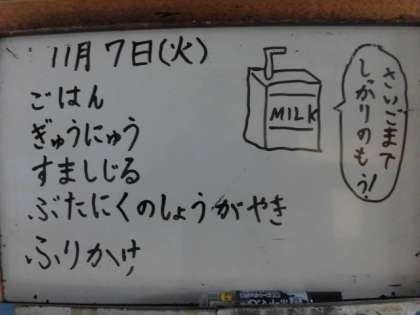 11月7日(火)
ごはん
ぎゅうにゅう
すましじる
ぶたにくのしょうがやき
ふりかけ
MILK
さいごまで
しがりのもう!